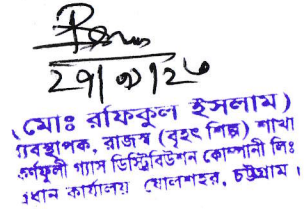 ২৭/০৯/২৩
(মোঃ রফিকুল ইসলাম)
ব্যবস্থাপক, রাজস্ব (বৃহৎ শিল্প) শাখা
কর্ণফুলী গ্যাস ডিস্ট্রিবিউশন কোম্পানী লিঃ
প্রধান কার্যালয় ষোলশহর, চট্টগ্রাম।